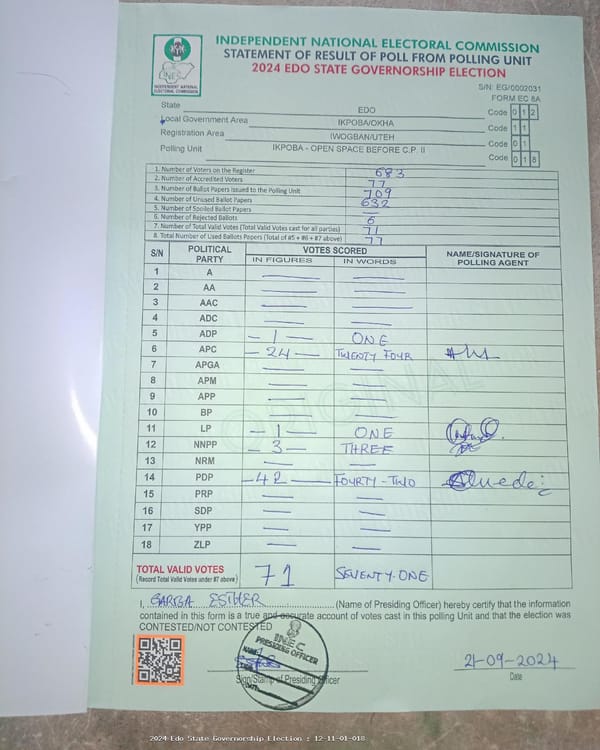 INDEPENDENT NATIONAL ELECTORAL COMMISSION
STATEMENT OF RESULT OF POLL FROM POLLING UNIT
2024 EDO STATE GOVERNORSHIP ELECTION
INEC
INDEPENDENT NATIONAL
ELECTORAL COMMISSION
S/N: EG/0002031
FORM EC 8A
State EDO Code 0 1 2
Local Government Area IKPOBA/OKHA Code 1 1
Registration Area IWOGBAN/UTEH Code 0 1
Polling Unit IKPOBA - OPEN SPACE BEFORE C.P. II Code 0 1 8
1. Number of Voters on the Register 683
2. Number of Accredited Voters 77
3. Number of Ballot Papers Issued to the Polling Unit 709
4. Number of Unused Ballot Papers 632
5. Number of Spoiled Ballot Papers —
6. Number of Rejected Ballots 6
7. Number of Total Valid Votes (Total Valid Votes cast for all parties) 71
8. Total Number of Used Ballots Papers (Total of #5 + #6 + #7 above) 77
S/N POLITICAL PARTY VOTES SCORED NAME/SIGNATURE OF POLLING AGENT
IN FIGURES IN WORDS
1 A — —
2 AA — —
3 AAC — —
4 ADC — —
5 ADP — 1 — ONE
6 APC — 24 — TWENTY FOUR
7 APGA — —
8 APM — —
9 APP — —
10 BP — —
11 LP — 1 — ONE
12 NNPP — 3 — THREE
13 NRM — —
14 PDP — 42 — FOURTY-TWO
15 PRP — —
16 SDP — —
17 YPP — —
18 ZLP — —
ORIGINAL
TOTAL VALID VOTES 71 SEVENTY-ONE
(Record Total Valid Votes under #7 above)
I, GARBA ESTHER (Name of Presiding Officer) hereby certify that the information
contained in this form is a true and accurate account of votes cast in this polling Unit and that the election was
CONTESTED/NOT CONTESTED
INEC
PRESIDING OFFICER
NAME:
SIGN:
DATE:
Sign/Stamp of Presiding Officer
21-09-2024
Date
2024 Edo State Governorship Election : 12-11-01-018